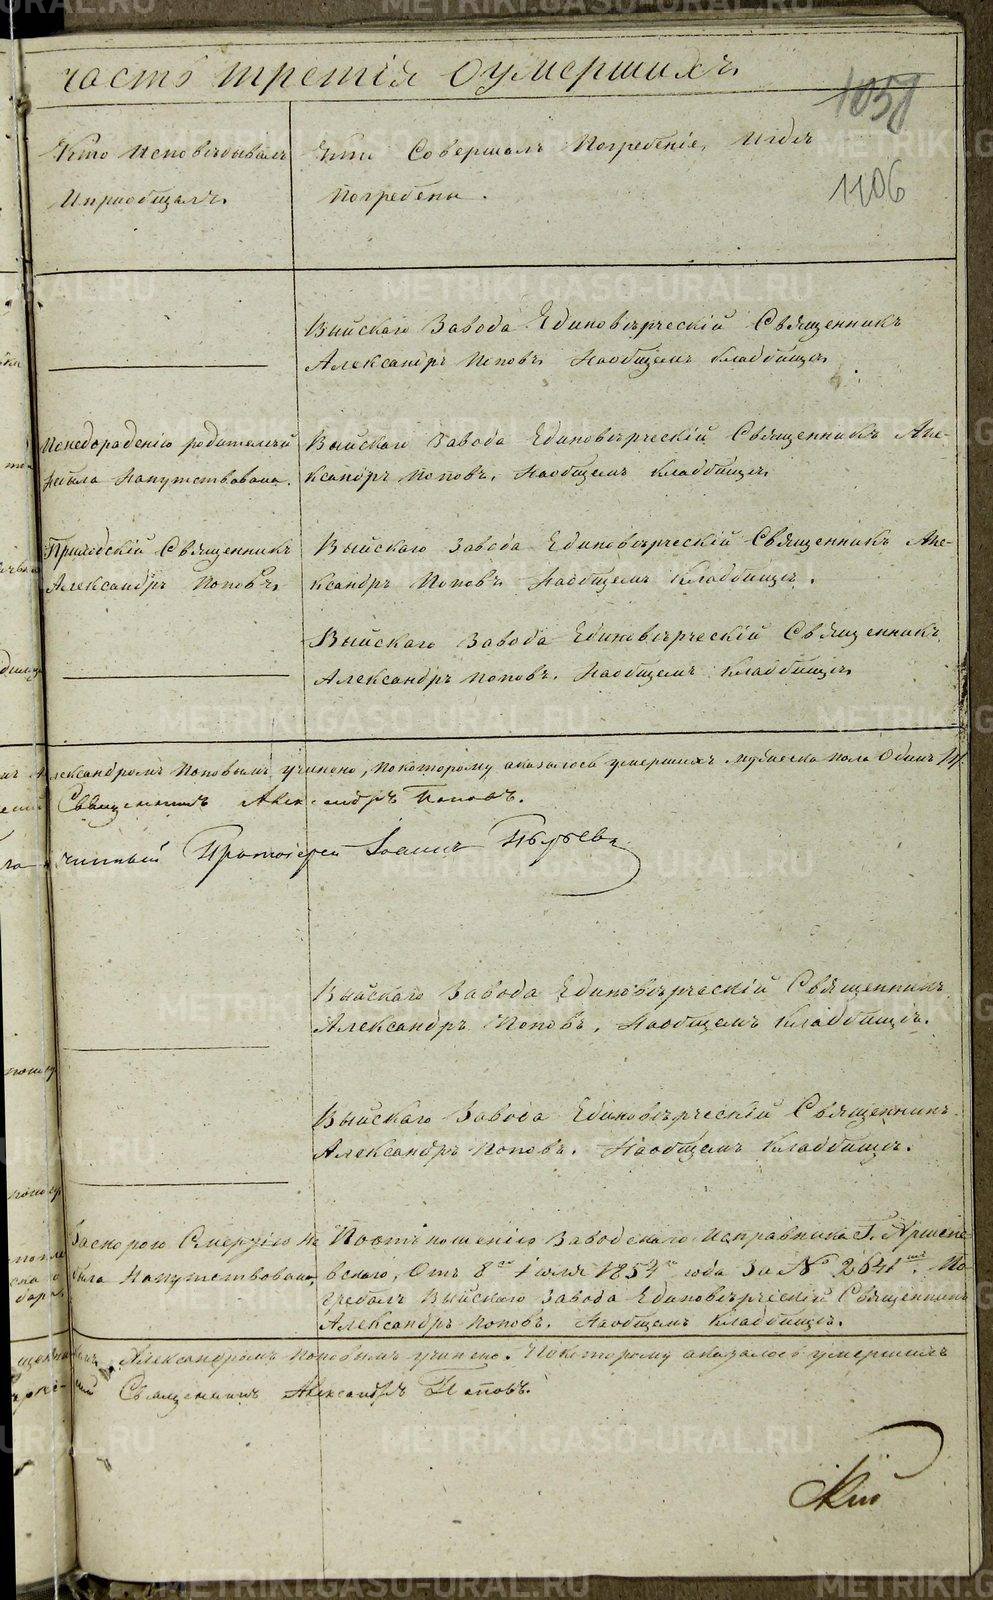 часть третія о умершихъ
1058
1106
Кто исповѣдывалъ
и приобщалъ.
Кто Совершалъ Погребеніе, и гдѣ
погребены.
Выйскаго Завода Единовѣрческій Священникъ
Александръ Поповъ, На общемъ кладбищѣ.
По нерадѣнію родителей
не была Напутствована.
Выйскаго Завода Единовѣрческій Священникъ Але-
ксандръ Поповъ, На общемъ кладбищѣ.
Приходскій Священникъ
Александръ Поповъ.
Выйскаго Завода Единовѣрческій Священникъ Але-
ксандръ Поповъ На общемъ Кладбищѣ.
Выйскаго Завода Единовѣрческій Священникъ
Александръ Поповъ. На общемъ Кладбищѣ.
Александромъ Поповымъ учинено, по которому оказалось умершихъ мужеска пола Одинъ
Священникъ Александръ Поповъ.
Протоіерей Іоаннъ
Выйскаго Завода Единовѣрческій Священникъ
Александръ Поповъ, На общемъ Кладбищѣ.
Выйскаго Завода Единовѣрческій Священникъ
Александръ Поповъ. На общемъ Кладбищѣ.
За скорою Смертію не
была Напутствована.
По отношенію Заводскаго Исправника Г.
вскаго, Отъ 8го Іюля 1854го года За № 2641мъ. По
гребалъ Выйскаго Завода Единовѣрческій Священникъ
Александръ Поповъ. На общемъ Кладбищѣ.
Александромъ Поповымъ учинено. По которому оказалось умершихъ
Священникъ Александръ Поповъ.
METRIKI.GASO-URAL.RU